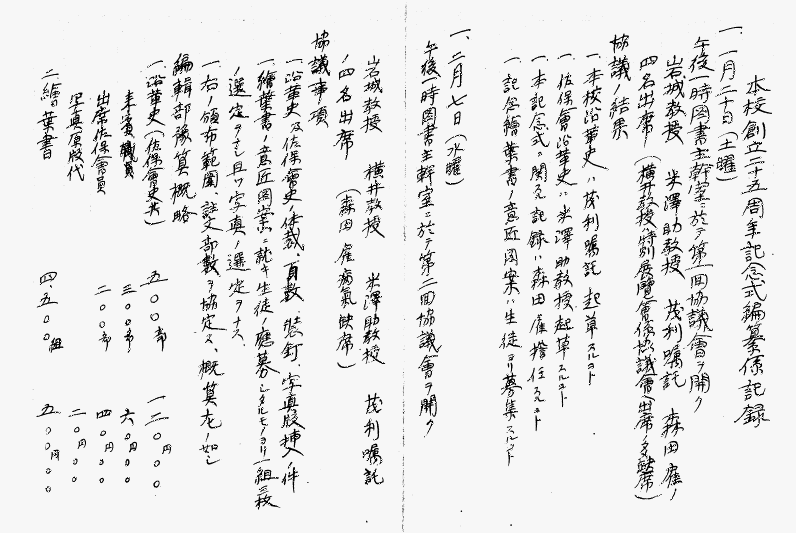 本校創立二十五周年記念式編纂係記録
一、一月二十日(土曜)
午後一時図書主幹室ニ於テ第一回協議會ヲ開ク
岩城教授 米澤助教授 茂利嘱託 森田雇ノ
四名出席 (横井教授ハ特別展覧會係協議會ヘ出席ノタメ缺席)
協議ノ結果
一、本校沿革史ハ茂利嘱託起草スルコト
一、佐保會沿革史ハ米澤助教授起草スルコト
一、本記念式ニ関スル記録ハ森田雇擔任スルコト
一、記念繪葉書ノ意匠図案ハ生徒ヨリ募集スルコト
一、二月七日(水曜)
午後一時図書主幹室ニ於テ第二回協議會ヲ開ク
岩城教授 横井教授 米澤助教授 茂利嘱託
ノ四名出席 (森田雇病氣缺席)
協議事項
一、沿革史及佐保會史ノ体裁、頁数、装釘、写真版挿入ノ件
一、繪葉書ノ意匠図案ニ就キ生徒ノ應募シタルモノヨリ一組三枚
ノ選定ヲナシ且ツ写真ノ選定ヲナス
一、右ノ頒布範圍、註文部数ヲ協定ス、概算左ノ如シ
編輯部豫算概略
一、沿革史(佐保會史共) 五〇〇部 一二〇円〇〇
来賓職員 三〇〇部 六〇円〇〇
出席佐保會員 二〇〇部 四〇円〇〇
写真原版代 二〇円〇〇
二、繪葉書 四、五〇〇組 五〇円〇〇